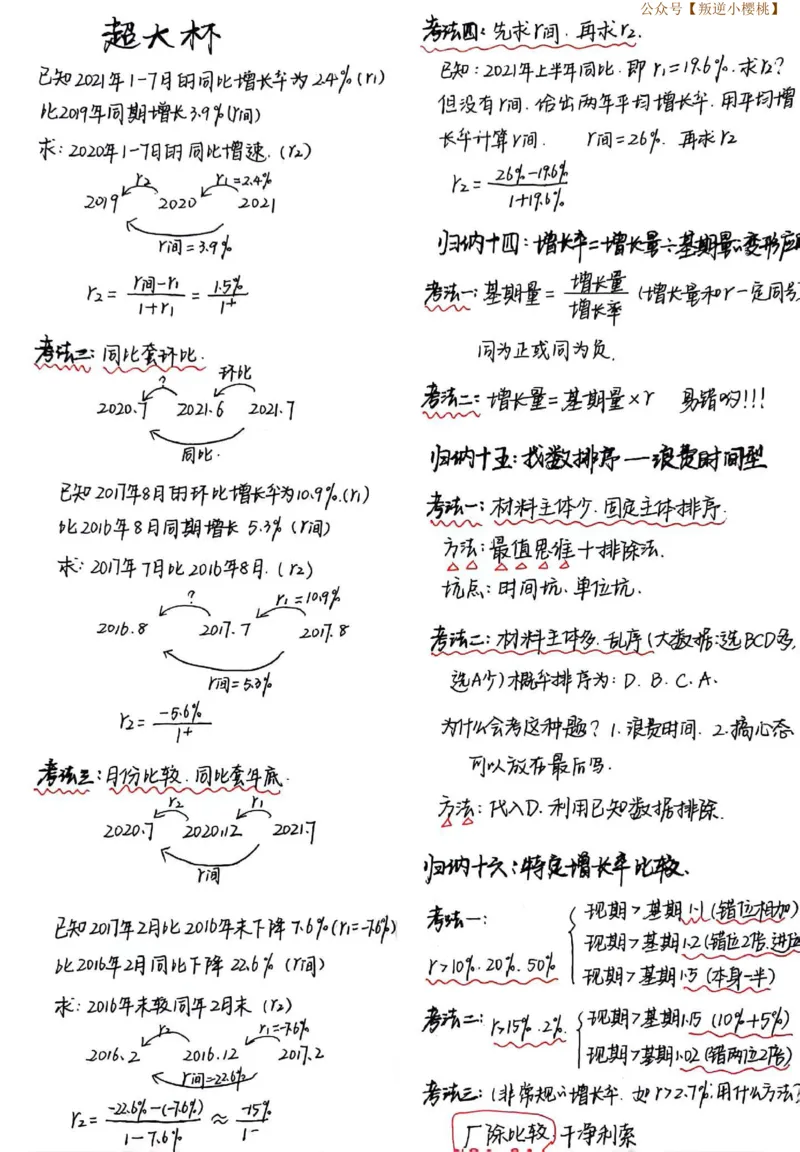 公众号【叛逆小樱桃】
超大杯
已知2021年1-7月的同比增长率为2.4%(r1)
比2019年同期增长3.9%(r间)
求:2020年1-7月的同比增速.(r2)
r2 r1=2.4%
2019 2020 2021
r间=3.9%
r2= r间-r1 / 1+r1 = 1.5% / 1+
考法二:同比套环比.
? 环比
2020.7 2021.6 2021.7
同比.
已知2017年8月的环比增长率为10.9%.(r1)
比2016年8月同期增长5.3%(r间)
求:2017年7月比2016年8月.(r2)
? r1=10.9%
2016.8 2017.7 2017.8
r间=5.3%
r2= -5.6% / 1+
考法三:月份比较.同比套年底.
r2 r1
2020.7 2020.12 2021.7
r间
已知2017年2月比2016年末下降7.6%(r1=-7.6%)
比2016年2月同比下降22.6%(r间)
求:2016年末较同年2月末(r2)
r2 r1=-7.6%
2016.2 2016.12 2017.2
r间=-22.6%
r2= -22.6%-(-7.6%) / 1-7.6% ≈ -15% / 1-
考法四:先求r间.再求r2.
已知:2021年上半年同比.即r1=19.6%.求r2?
但没有r间.给出两年平均增长率.用平均增
长率计算r间. r间=26%.再求r2
r2= 26%-19.6% / 1+19.6%
归纳十四:增长率=增长量÷基期量の变形应
考法一:基期量= 增长量 / 增长率 (增长量和r一定同号
同为正或同为负.
考法二:增长量=基期量×r 易错哟!!!
归纳十五:找数排序—浪费时间型
考法一:材料主体少.固定主体排序.
方法:最值思维+排除法.
坑点:时间坑.单位坑.
考法二:材料主体多.乱序(大数据:选BCD多,
选A少)概率排序为:D.B.C.A.
为什么会考这种题?1.浪费时间.2.搞心态
可以放在最后写.
方法:代入D.利用已知数据排除.
归纳十六:特定增长率比较.
考法一:
r>10%.20%.50%
现期>基期1.1(错位相加)
现期>基期1.2(错位2倍.进位
现期>基期1.5(本身一半)
考法二:r>15%.2%.
现期>基期1.15(10%+5%)
现期>基期1.02(错两位2倍)
考法三:(非常规の增长率.如r>2.7%.用什么方法?
厂除比较.干净利索